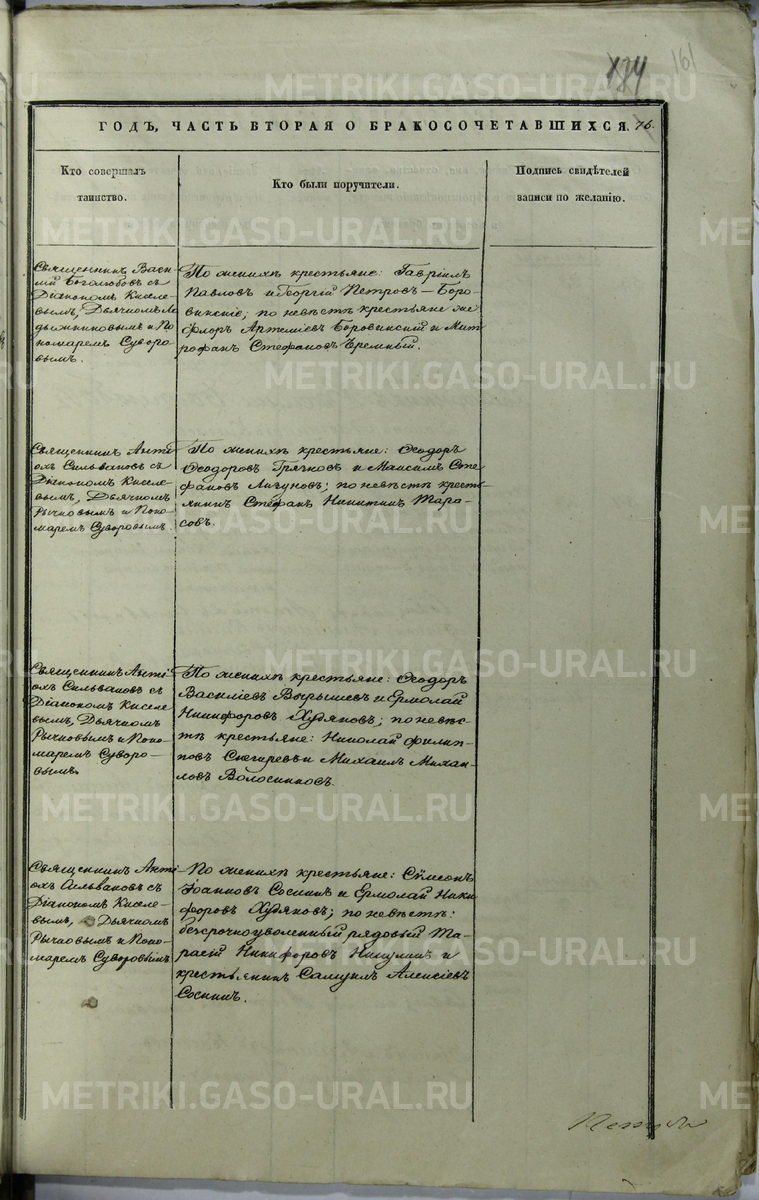 161
174
ГОДЪ, ЧАСТЬ ВТОРАЯ О БРАКОСОЧЕТАВШИХСЯ. 76.
Кто совершалъ
таинство.
Кто были поручители.
Подпись свидѣтелей
записи по желанію.
Священникъ Васи
лій Боголюбовъ съ
Діакономъ Киселе-
вымъ, Дьячкомъ Ла
дыжниковымъ и По
номаремъ Суворо
вымъ.
По женихѣ крестьяне: Гавріилъ
Павловъ и Георгій Петровъ - Боро-
винскіе; по невѣстѣ крестьяне же
Флоръ Артеміевъ Боровинскій и Мит
рофанъ Стефановъ
Священникъ Анті
охъ Сильвановъ съ
Діакономъ Киселе-
вымъ, Дьячкомъ
Рычковымъ и Поно-
маремъ Суворовымъ.
По женихѣ крестьяне: Ѳеодоръ
Ѳеодоровъ Грячковъ и Максимъ Сте
фановъ Лигуновъ; по невѣстѣ кресть
янинъ Стефанъ Никитинъ Тара-
совъ.
Священникъ Анті
охъ Сильвановъ съ
Діакономъ Киселе-
вымъ, Дьячкомъ
Рычковымъ и Поно-
маремъ Суворо-
вымъ.
По женихѣ крестьяне: Ѳеодоръ
Василіевъ и Ермолай
Никифоровъ Худяковъ; по невѣс-
тѣ крестьяне: Николай Филип-
повъ Снегиревъ и Михаилъ Михаи-
ловъ Волосниковъ.
Священникъ Анті
охъ Сильвановъ съ
Діакономъ Киселе-
вымъ, Дьячкомъ
Рычковымъ и Поно-
маремъ Суворовымъ
По женихѣ крестьяне: Сѷмеонъ
Іоанновъ Соснинъ и Ермолай Ники
форовъ Худяковъ; по невѣстѣ:
безсрочноуволенный рядовый Та-
расій Никифоровъ и
крестьянинъ Самуилъ Алексіевъ
Соснинъ.
METRIKI.GASO-URAL.RU